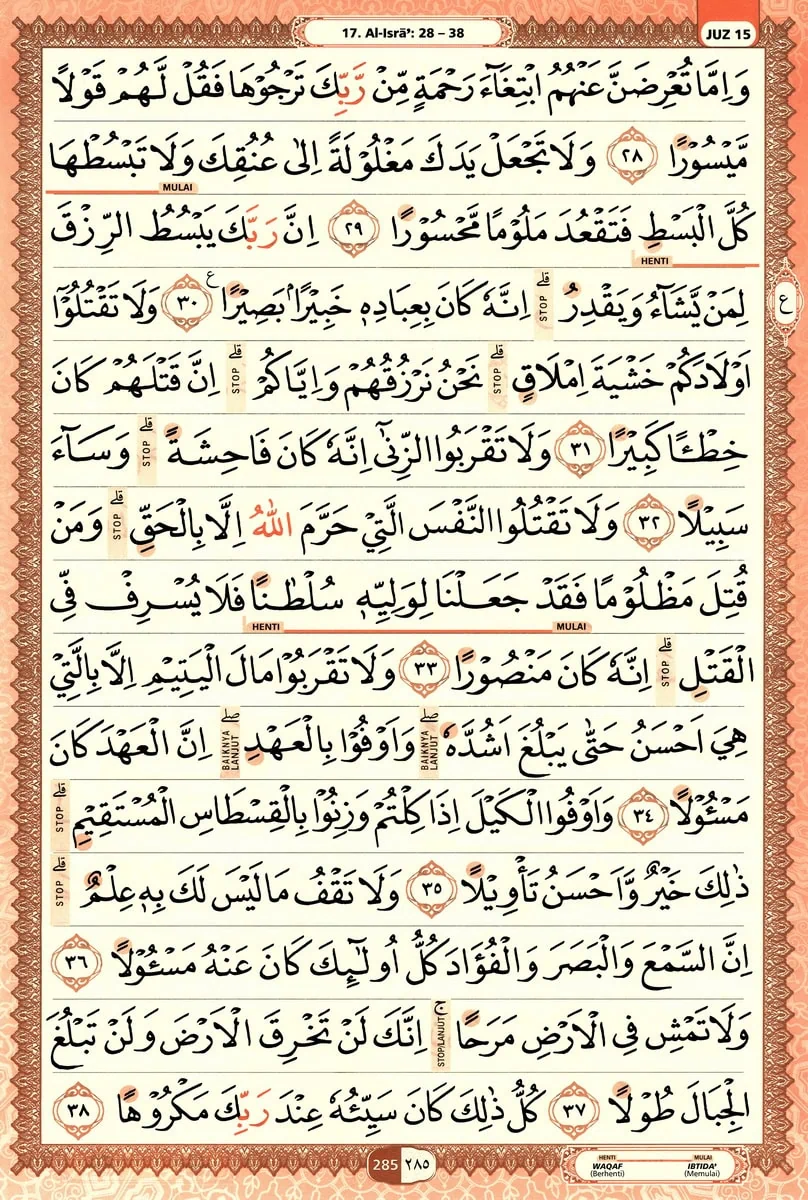 17. Al-Isrā’: 28 – 38
JUZ 15
وَاِمَّا تُعْرِضَنَّ عَنْهُمُ ابْتِغَاۤءَ رَحْمَةٍ مِّنْ رَّبِّكَ تَرْجُوْهَا فَقُلْ لَّهُمْ قَوْلًا
مَّيْسُوْرًا ٢٨ وَلَا تَجْعَلْ يَدَكَ مَغْلُوْلَةً اِلٰى عُنُقِكَ وَلَا تَبْسُطْهَا
MULAI
كُلَّ الْبَسْطِ فَتَقْعُدَ مَلُوْمًا مَّحْسُوْرًا ٢٩ اِنَّ رَبَّكَ يَبْسُطُ الرِّزْقَ
HENTI
لِمَنْ يَّشَاۤءُ وَيَقْدِرُ ۗ STOP اِنَّهٗ كَانَ بِعِبَادِهٖ خَبِيْرًاۢ بَصِيْرًا ࣖ ٣٠ وَلَا تَقْتُلُوْٓا
ع
اَوْلَادَكُمْ خَشْيَةَ اِمْلَاقٍۗ STOP نَحْنُ نَرْزُقُهُمْ وَاِيَّاكُمْۗ STOP اِنَّ قَتْلَهُمْ كَانَ
خِطْـًٔا كَبِيْرًا ٣١ وَلَا تَقْرَبُوا الزِّنٰٓى اِنَّهٗ كَانَ فَاحِشَةًۗ STOP وَسَاۤءَ
سَبِيْلًا ٣٢ وَلَا تَقْتُلُوا النَّفْسَ الَّتِيْ حَرَّمَ اللّٰهُ اِلَّا بِالْحَقِّۗ STOP وَمَنْ
قُتِلَ مَظْلُوْمًا فَقَدْ جَعَلْنَا لِوَلِيِّهٖ سُلْطٰنًا فَلَا يُسْرِفْ فِّى
MULAI HENTI
الْقَتْلِۗ STOP اِنَّهٗ كَانَ مَنْصُوْرًا ٣٣ وَلَا تَقْرَبُوْا مَالَ الْيَتِيْمِ اِلَّا بِالَّتِيْ
هِيَ اَحْسَنُ حَتّٰى يَبْلُغَ اَشُدَّهٗۖ BAIKNYA LANJUT وَاَوْفُوْا بِالْعَهْدِۖ BAIKNYA LANJUT اِنَّ الْعَهْدَ كَانَ
مَسْـُٔوْلًا ٣٤ وَاَوْفُوا الْكَيْلَ اِذَا كِلْتُمْ وَزِنُوْا بِالْقِسْطَاسِ الْمُسْتَقِيْمِۗ STOP
ذٰلِكَ خَيْرٌ وَّاَحْسَنُ تَأْوِيْلًا ٣٥ وَلَا تَقْفُ مَا لَيْسَ لَكَ بِهٖ عِلْمٌۗ STOP
اِنَّ السَّمْعَ وَالْبَصَرَ وَالْفُؤَادَ كُلُّ اُولٰۤىِٕكَ كَانَ عَنْهُ مَسْـُٔوْلًا ٣٦
وَلَا تَمْشِ فِى الْاَرْضِ مَرَحًاۚ STOP/LANJUT اِنَّكَ لَنْ تَخْرِقَ الْاَرْضَ وَلَنْ تَبْلُغَ
الْجِبَالَ طُوْلًا ٣٧ كُلُّ ذٰلِكَ كَانَ سَيِّئُهٗ عِنْدَ رَبِّكَ مَكْرُوْهًا ٣٨
285 ٢٨٥
HENTI MULAI
WAQAF IBTIDA'
(Berhenti) (Memulai)